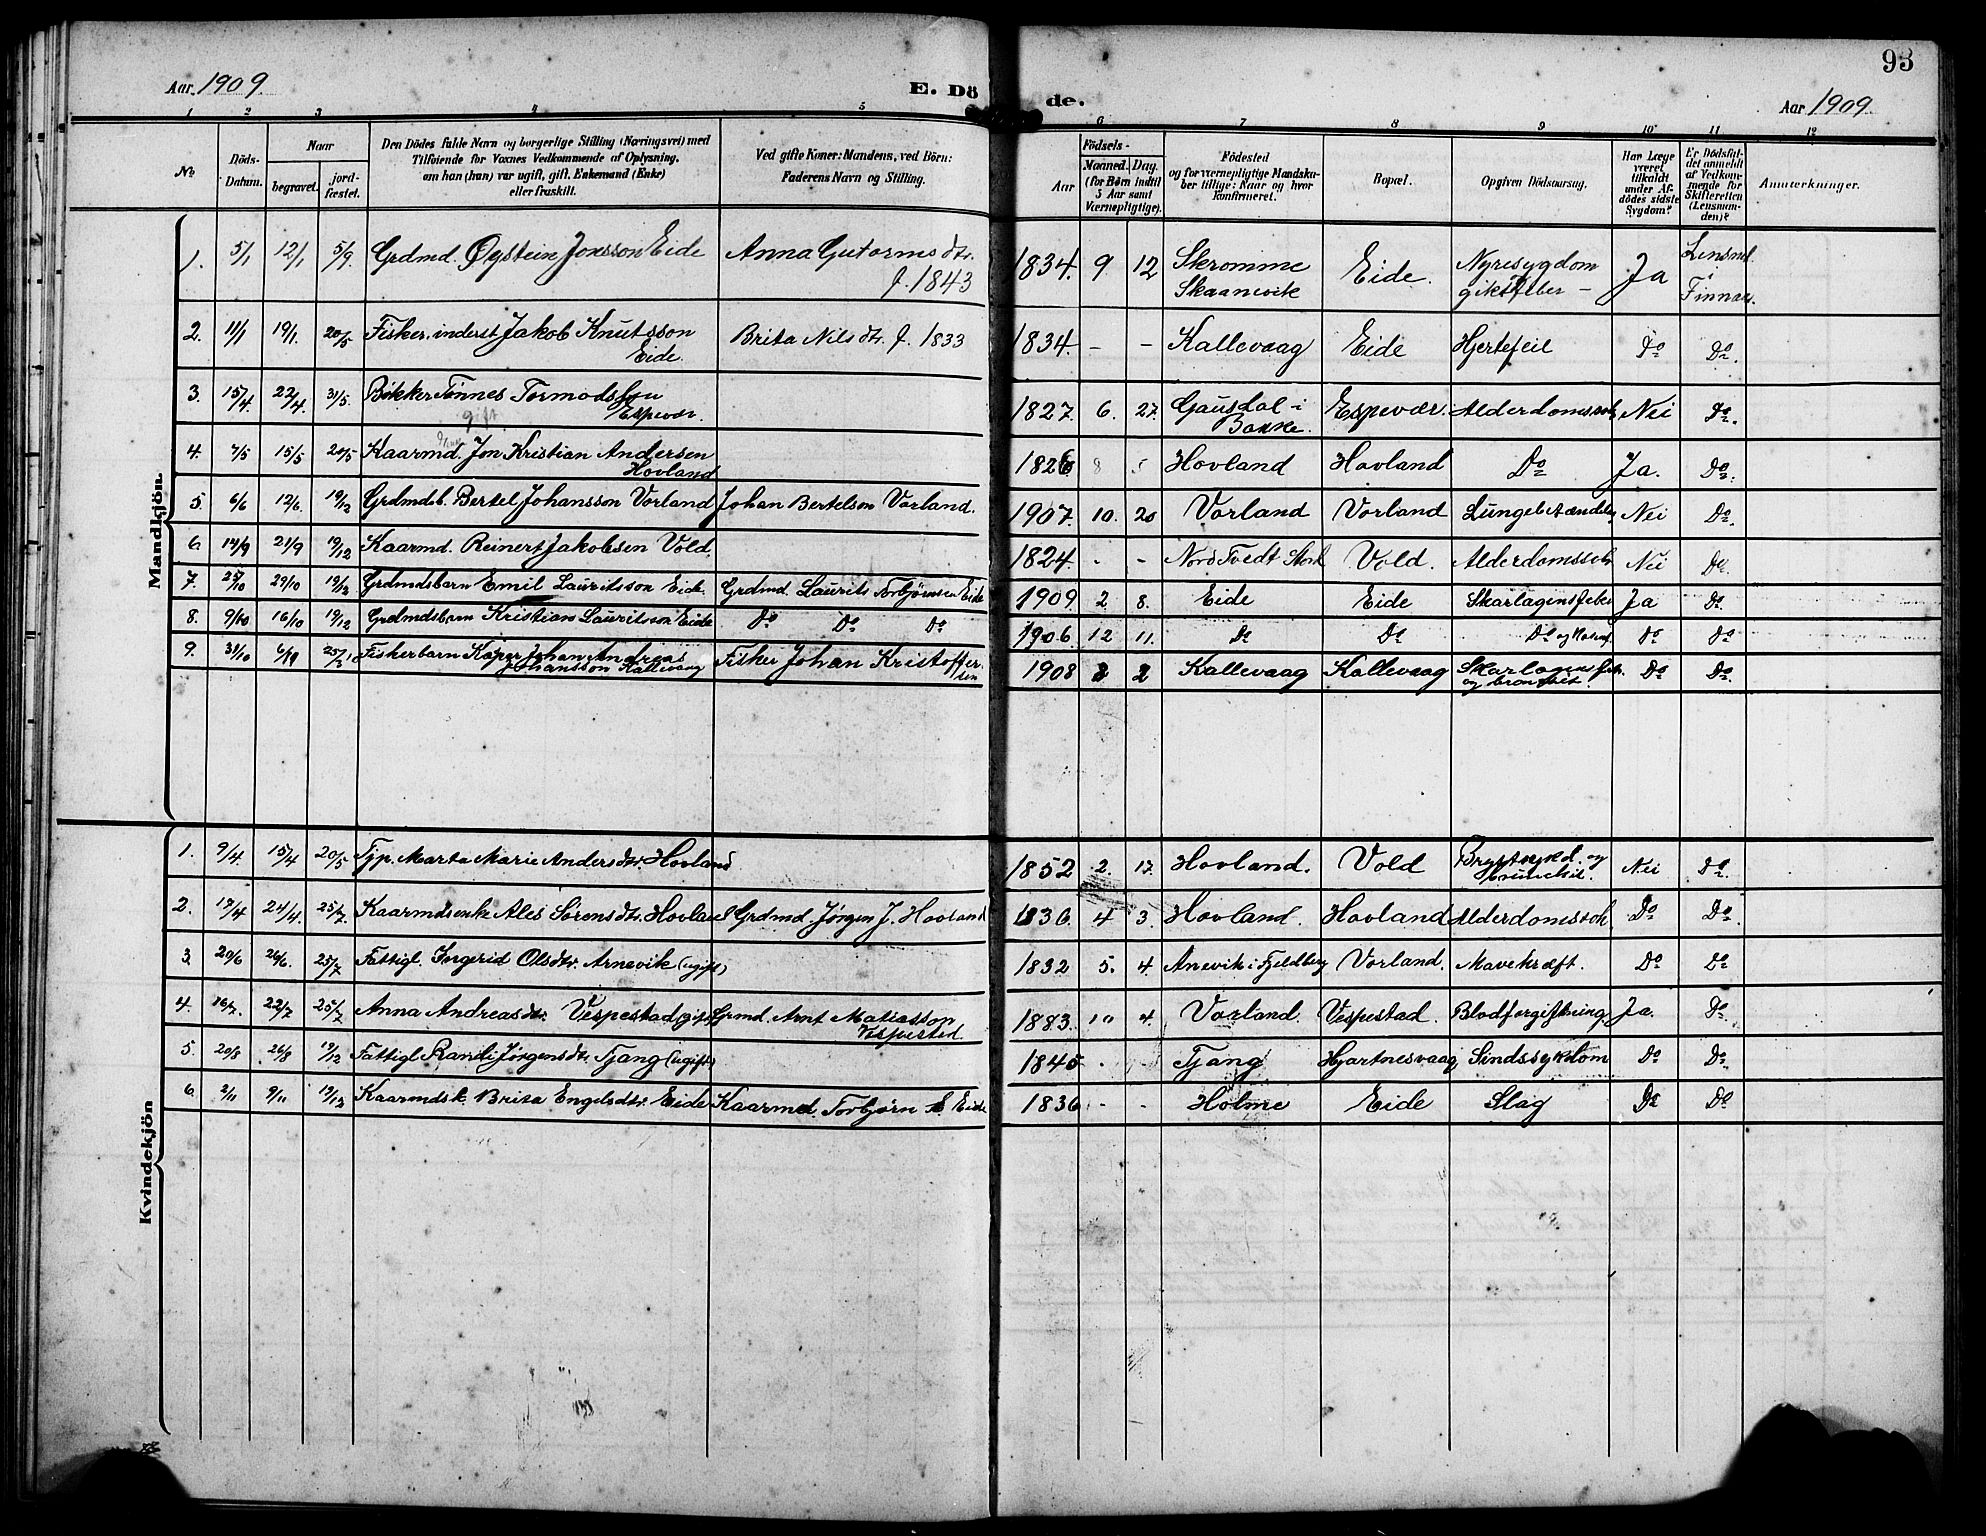 93
Aar 1909
E. Dö
de.
Aar 1909
1 2 3 4 5 6 7 8 9 10 11 12
No
Döds-
Datum.
Naar
begravet.
jord-
fæstet.
Den Dödes fulde Navn og borgerlige Stilling (Næringsvei) med
Tilføiende for Voxnes Vedkommende af Oplysning.
om han (hun) var ugift, gift, Enkemand (Enke)
eller fraskilt.
Ved gifte Koner: Mandens, ved Börn:
Faderens Navn og Stilling.
Födsels-
Aar
Maaned.
Dag.
(for Børn indtil
5 Aar samt
Værnepligtige).
Födested
og for værnepligtige Mandska-
ber tillige: Naar og hvor
konfirmeret.
Bopæl.
Opgiven Dödsaarsag.
Har Læge
været
tilkaldt
under Af-
dødes sidste
Sygdom?
Er Dödsfal-
det anmeldt
af Vedkom-
mende for
Skifteretten
(Lensman-
den)?
Anmærkninger.
Mandkjön.
1. 5/1 12/1 5/9 Grdmd. Øystein Jonsson Eide Anna Gutormsdtr. 1834. 9 12 Skromme Eide. Nyresygdom Ja Lensmd.
f. 1843 Skaanevik giktfeber – i Finnaas.
2. 11/1 19/1. 20/5 Fisker, inderst Jakob Knutsson Brita Nilsdtr. f. 1833 1834. - - Kallevaag Eide Hjertefeil Do Do.
Eide.
3. 15/4 22/4 31/5. Bøkker Tønnes Tormodsen 1827. 6. 27. Gausdal i Espevær. Alderdomssvh. Nei Do.
gift Espevær. Bakke.
4. 7/5 15/5 20/5 Kaarmd. Jon Kristian Andersen 1826 8 5 Hovland Hovland Do Ja. Do.
Hovland
5. 6/6 12/6. 19/12 Grdmdsb. Bertel Johansson Vorland Johan Bertelson Vorland. 1907. 10. 20 Vorland Vorland Lungebetændelse Nei Do.
6. 14/9 21/9 19/12 Kaarmd. Reinert Jakobsen Vold. 1824. - - Nord Tvedt Stord Vold. Alderdomssvh. Nei Do.
7. 25/10 29/10 19/12 Grdmdsbarn Emil Lauritsson Eide. Grdmd. Laurits Torbjørnsen Eide 1909 2 8. Eide Eide Skarlagensfeber Ja Do
8. 9/10 16/10 19/12 Grdmdsbarn Kristian Lauritsson Eide Do Do Do 1906 12 11. Do Do Do Do Do
9. 31/10 Fiskerbarn Kasper Johan Andreas Fisker Johan Kristoffer- 1908 2 Kallevaag Kallevaag Skarlagensfeb. Do Do.
Johansson Kallevaag sen og bronchit.
Kvindekjön
1. 9/4 15/4 20/5 Tjp. Marta Marie Andersdtr. Hovland 1852 2. 17. Hovland. Vold Brystsygd. og Nei Do
bronchit.
2. 17/4 24/4. 25/7. Kaarmdsenke Ales Sørensdtr. Hovland Grdmd. Jørgen J. Hovland 1836. 4 3. Hovland. Hovland Alderdomssvh. Do Do.
3. 20/6 26/6. 25/7 Fattigl. Ingerid Olsdtr. Arnevik (ugift) 1832 5. 4. Anevik i Fjeldberg Vorland. Mavekræft. Do Do
4. 16/7. 22/7 25/7 Anna Andreasdtr. Vespestad (gift) Grmd. Arnt Matiasson 1883. 10 4. Vorland. Vespestad. Blodforgiftning Ja. Do
Vespestad
5. 20/8 26/8 19/12 Fattigl Randi Jørgensdtr. Tjang (ugift) 1845 - - Tjang Hjartnesvaag Sindssykdom Do Do.
6. 2/11 9/11 19/12 Kaarmdsk. Brita Engelsdtr. Eide Kaarmd. Torbjørn Eide 1836 - - Holme Eide Slag Do Do